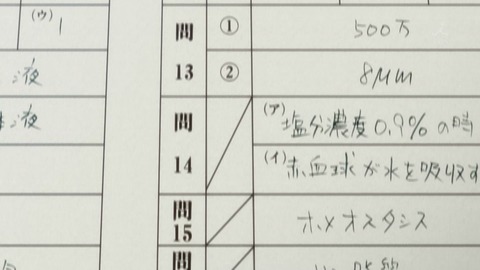 (ウ) 1
液
液
問 13 ① 500万
② 8μm
問 14 (ア) 塩分濃度0.9%の時
(イ) 赤血球が水を吸収す
問 15 ホメオスタシス
問